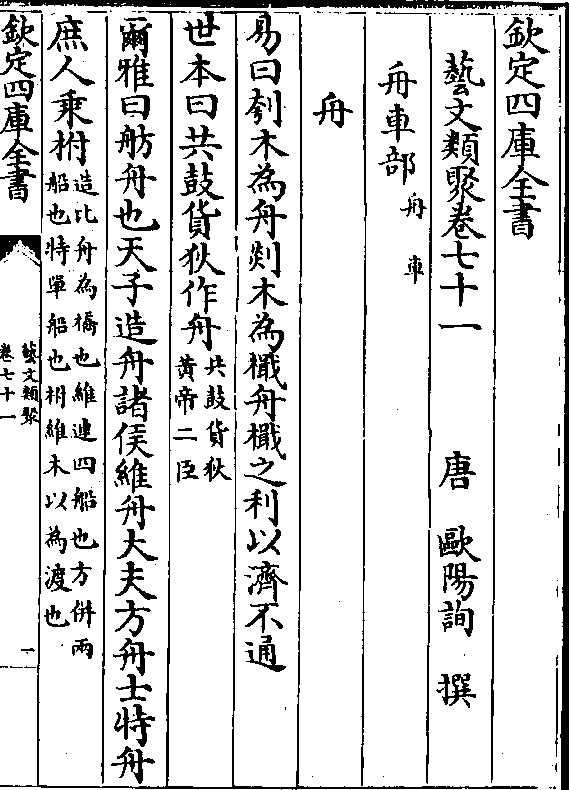 欽定四庫全書
藝文類聚卷七十一
唐 歐陽詢 撰
舟車部 舟 車
舟
易曰刳木為舟剡木為檝舟檝之利以濟不通
世本曰共鼓貨狄作舟 共鼓貨狄
黃帝二臣
爾雅曰舫舟也天子造舟諸侯維舟大夫方舟士特舟
庶人乗柎 造比舟為橋也維連四船也方併兩
船也特單船也柎維木以為渡也
欽定四庫全書
藝文類聚
卷七十一
一